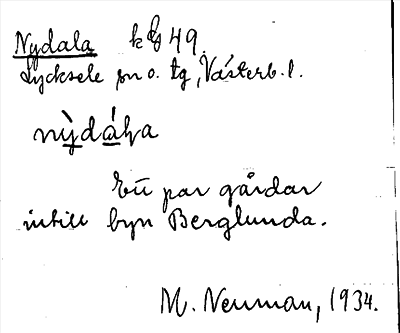 Nydala kbg 49.
Lycksele sn o. tg, Västerb. l.
nỳdáḷa
Ett par gårdar
intill byn Berglunda.
M. Neuman, 1934.